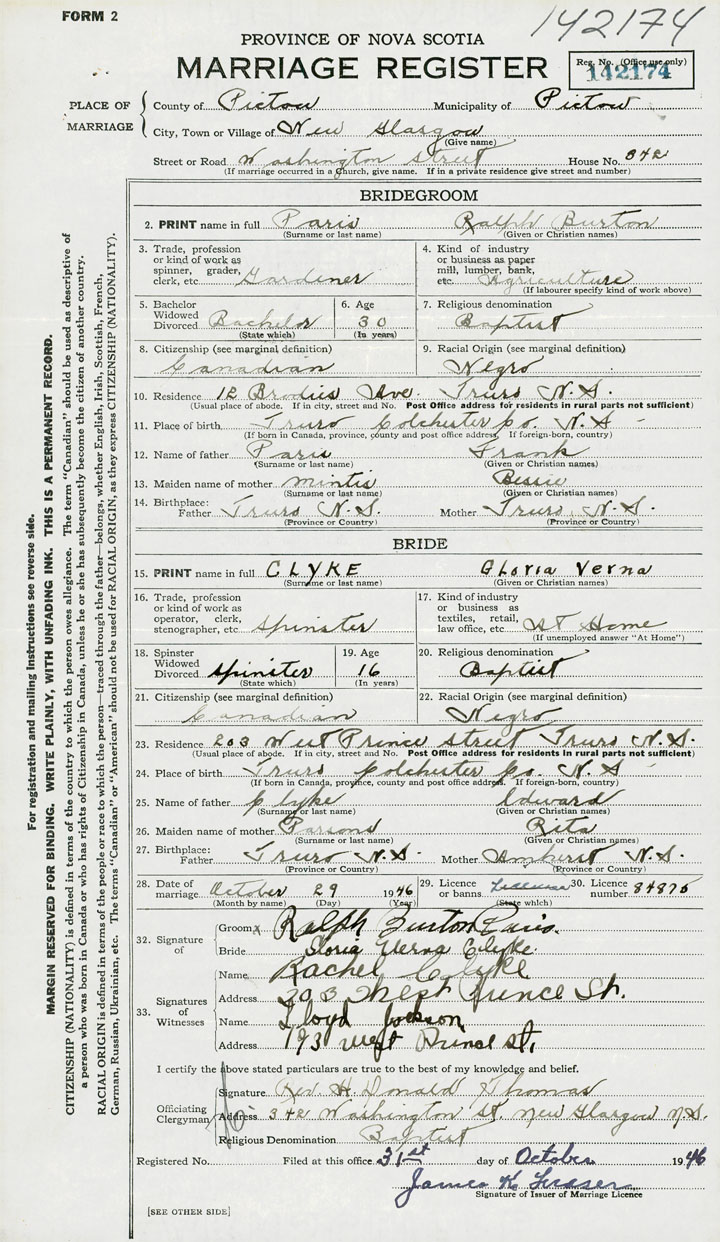 FORM 2
142174
PROVINCE OF NOVA SCOTIA
MARRIAGE REGISTER
Reg. No. (Office use only)
142174
PLACE OF MARRIAGE
County of Pictou Municipality of Pictou
City, Town or Village of New Glasgow
(Give name)
Street or Road Washington Street House No. 342
(If marriage occurred in a church, give name. If in a private residence give street and number)
BRIDEGROOM
2. PRINT name in full Paris Ralph Burton
(Surname or last name) (Given or Christian names)
3. Trade, profession or kind of work as spinner, grader, clerk, etc. Gardiner
4. Kind of industry or business as paper mill, lumber, bank, etc. Agriculture
(If labourer specify kind of work above)
5. Bachelor Widowed Divorced Bachelor
(State which)
6. Age 30
(In years)
7. Religious denomination
Baptist
8. Citizenship (see marginal definition)
Canadian
9. Racial Origin (see marginal definition)
Negro
10. Residence 12 Brodies Ave. Truro N.S.
(Usual place of abode. If in city, street and No. Post Office address for residents in rural parts not sufficient)
11. Place of birth Truro Colchester Co. N.S
(If born in Canada, province, county and post office address. If foreign-born, country)
12. Name of father Paris Frank
(Surname or last name) (Given or Christian names)
13. Maiden name of mother Mintis Bessie
(Surname or last name) (Given or Christian names)
14. Birthplace: Father Truro N.S. Mother Truro, N.S.
(Province or Country) (Province or Country)
BRIDE
15. PRINT name in full CLYKE Gloria Verna
(Surname or last name) (Given or Christian names)
16. Trade, profession or kind of work as operator, clerk, stenographer, etc. Spinster
17. Kind of industry or business as textiles, retail, law office, etc. At Home
(If unemployed answer "At Home")
18. Spinster Widowed Divorced Spinster
(State which)
19. Age 16
(In years)
20. Religious denomination
Baptist
21. Citizenship (see marginal definition)
Canadian
22. Racial Origin (see marginal definition)
Negro
23. Residence 203 West Prince Street Truro N.S.
(Usual place of abode. If in city, street and No. Post Office address for residents in rural parts not sufficient)
24. Place of birth Truro Colchester Co. N.S
(If born in Canada, province, county and post office address. If foreign-born, country)
25. Name of father Clyke Edward
(Surname or last name) (Given or Christian names)
26. Maiden name of mother Parsons Rita
(Surname or last name) (Given or Christian names)
27. Birthplace: Father Truro N.S. Mother Amherst N.S.
(Province or Country) (Province or Country)
28. Date of marriage October 29 1946
(Month by name) (Day) (Year)
29. Licence or banns
(State which)
30. Licence number 84875
32. Signature of
Groom x Ralph Burton Paris.
Bride Gloria Verna Clyke.
33. Signatures of Witnesses
Name Rachel Clyke
Address 203 West Prince St.
Name Lloyd Jackson
Address 193 West Prince St.
I certify the above stated particulars are true to the best of my knowledge and belief.
Officiating Clergyman
Signature Rev. H. Donald Thomas
Address 342 Washington St. New Glasgow N.S.
Religious Denomination Baptist
Registered No. Filed at this office 31st day of October 1946
James K.
Signature of Issuer of Marriage Licence
[SEE OTHER SIDE]
For registration and mailing instructions see reverse side.
MARGIN RESERVED FOR BINDING. WRITE PLAINLY, WITH UNFADING INK. THIS IS A PERMANENT RECORD.
CITIZENSHIP (NATIONALITY) is defined in terms of the country to which the person owes allegiance. The term "Canadian" should be used as descriptive of
a person who was born in Canada or who has rights of Citizenship in Canada, unless he or she has subsequently become the citizen of another country.
RACIAL ORIGIN is defined in terms of the people or race to which the person—traced through the father—belongs, whether English, Irish, Scottish, French,
German, Russian, Ukrainian, etc. The terms "Canadian" or "American" should not be used for RACIAL ORIGIN, as they express CITIZENSHIP (NATIONALITY).